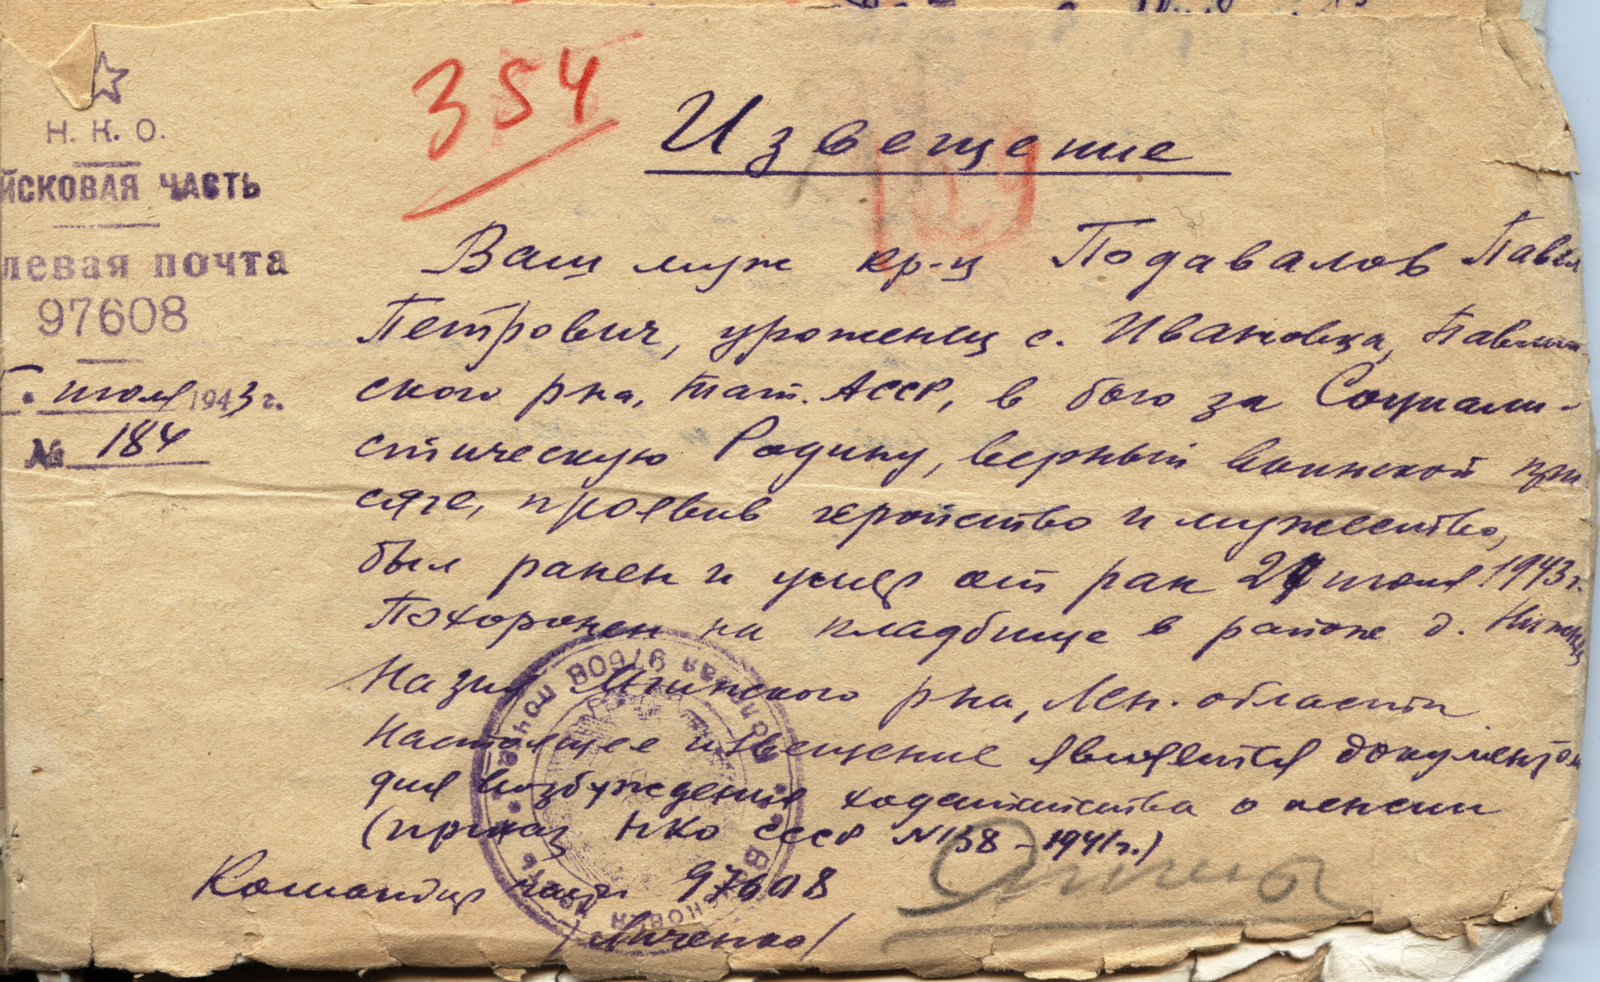 Н. К. О.
йсковая часть
левая почта
97608
июля 1943 г.
№ 184
354
Извещение
Ваш муж кр-ц Подавалов Павел
Петрович, уроженец с. Ивановка,
ского р на, Тат. АССР, в бою за Социали-
стическую Родину, верный воинской при
сяге, проявив геройство и мужество,
был ранен и умер от ран июля 1943 г.
Похоронен на кладбище в районе д.
Назия Мгинского р на, Лен. области
Настоящее извещение является документом
для возбуждения ходатайства о пенсии
(приказ НКО СССР N 138 - 1941 г.)
Командир части 97608
97608